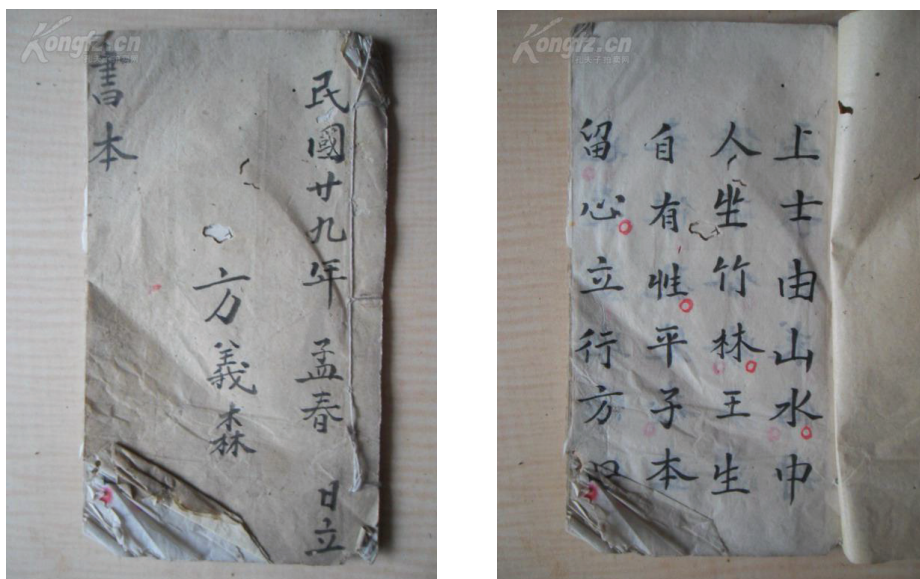 Kongfz.cn
民國廿九年 孟春 日立
方義森
書本
Kongfz.cn
孔夫子拍卖网
上士由山水中
人坐竹林王生
自有性平子本
留心立行方